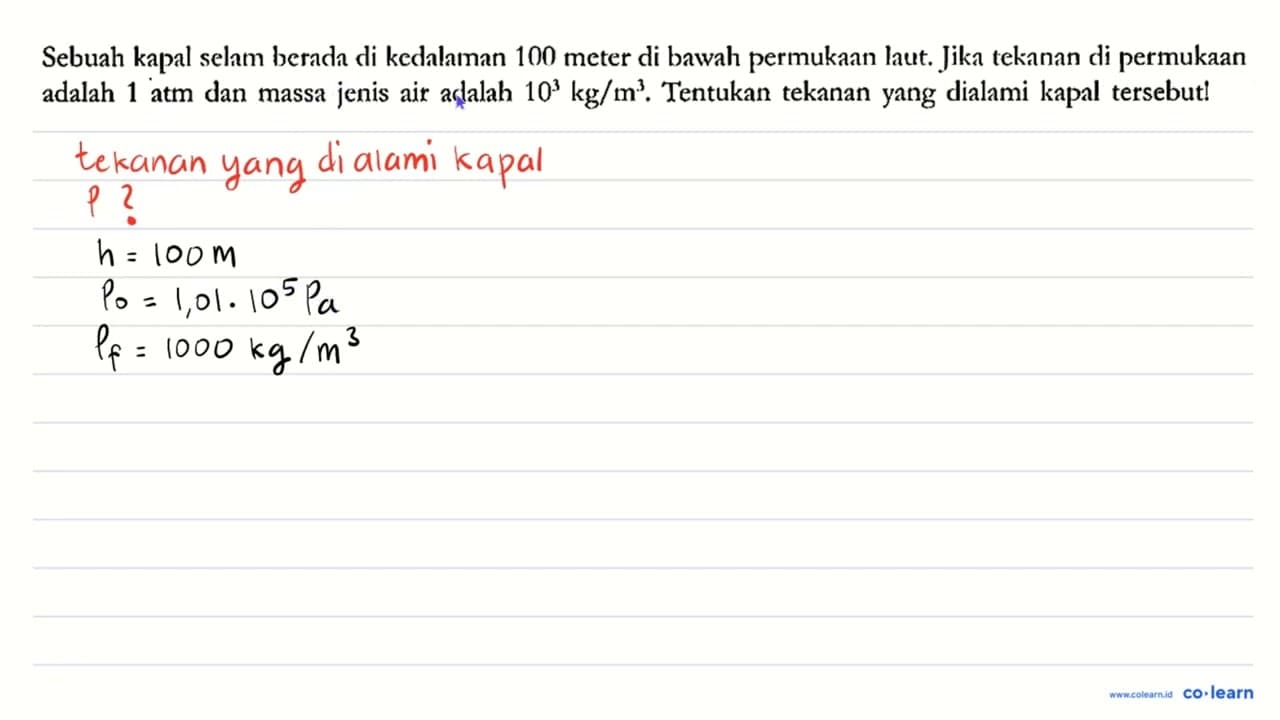 Sebuah kapal selam berada di kedalaman 100 meter di bawah permukaan laut. Jika tekanan di permukaan
adalah 1 atm dan massa jenis air adalah 10³ kg/m³. Tentukan tekanan yang dialami kapal tersebut!
tekanan yang dialami kapal
P ?
h = 100 m
P₀ = 1,01 . 10⁵ Pa
ρf = 1000 kg/m³
www.colearn.id co·learn